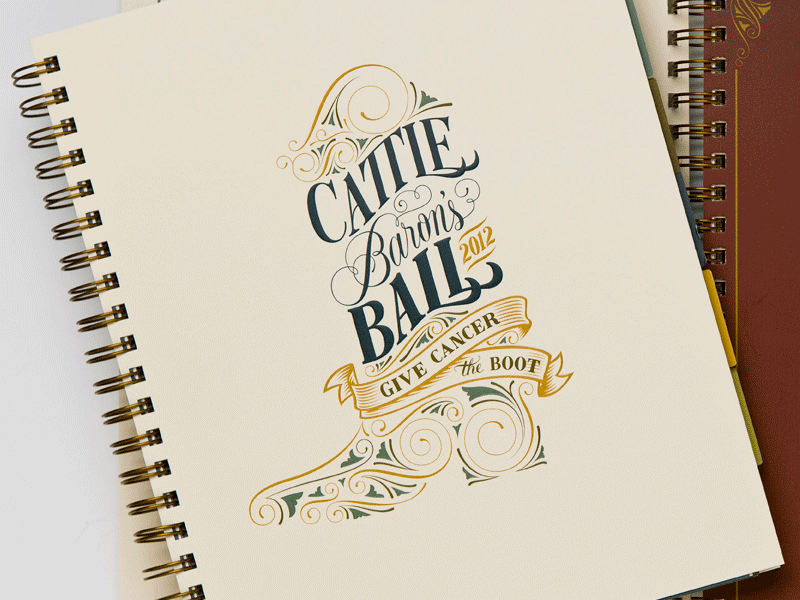 CATTLE
Baron's
2012
BALL
GIVE CANCER
the BOOT